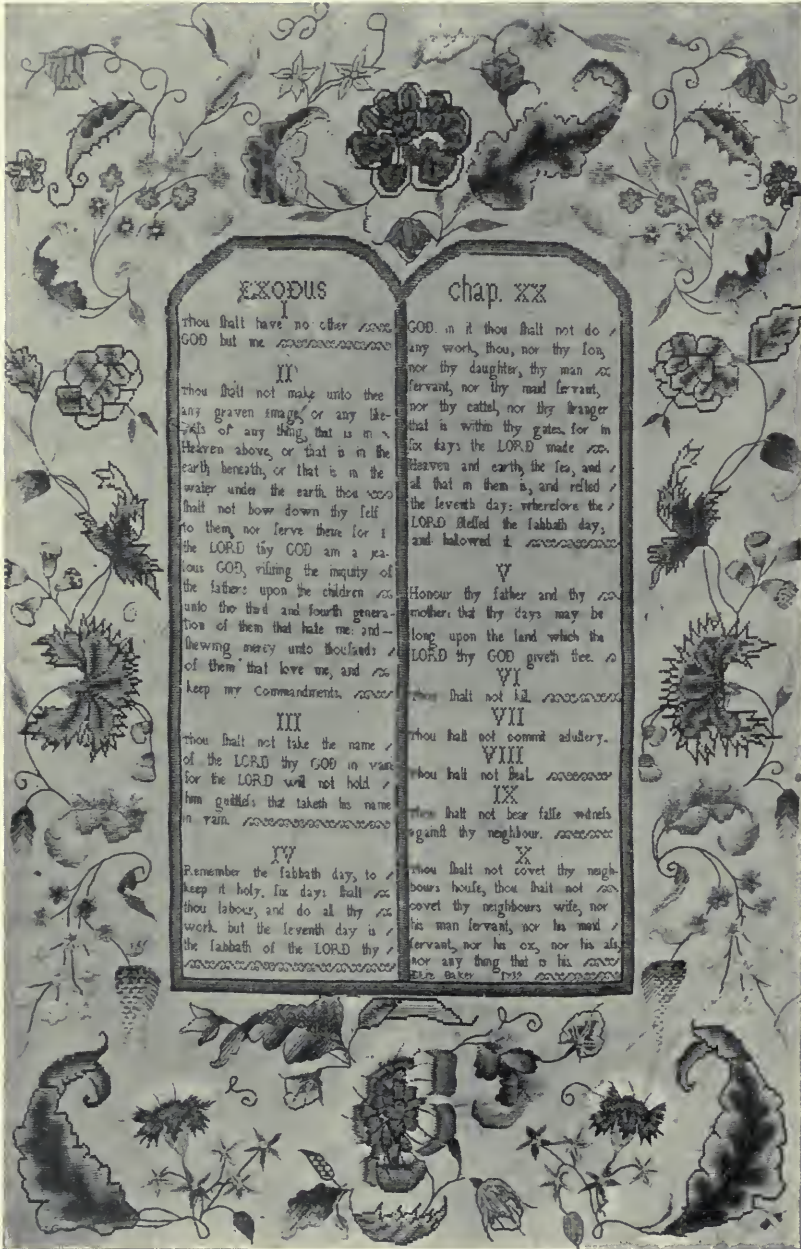 EXODUS
I
Thou ſhalt have no other
GOD but me
II
Thou ſhalt not make unto thee
any graven image, or any like-
neſs of any thing, that is in
Heaven above, or that is in the
earth beneath, or that is in the
water under the earth. thou
ſhalt not bow down thy ſelf
to them, nor ſerve them: for I
the LORD thy GOD am a jea-
lous GOD, viſiting the iniquity of
the fathers upon the children
unto the third and fourth genera-
tion of them that hate me: and
ſhewing mercy unto thouſands
of them that love me, and
keep my Commandments.
III
Thou ſhalt not take the name
of the LORD thy GOD in vain
for the LORD will not hold
him guiltleſs that taketh his name
in vain.
IV
Remember the ſabbath day, to
keep it holy. ſix days ſhalt
thou labour, and do all thy
work. but the ſeventh day is
the ſabbath of the LORD thy
chap. XX
GOD. in it thou ſhalt not do
any work, thou, nor thy ſon,
nor thy daughter, thy man
ſervant, nor thy maid ſervant,
nor thy cattel, nor thy ſtranger
that is within thy gates. for in
ſix days the LORD made
Heaven and earth, the ſea, and
all that in them is, and reſted
the ſeventh day: wherefore the
LORD bleſſed the ſabbath day,
and halowed it
V
Honour thy father and thy
mother: that thy days may be
long upon the land which the
LORD thy GOD giveth thee.
VI
Thou ſhalt not kill.
VII
Thou ſhalt not commit adultery.
VIII
Thou ſhalt not ſteal.
IX
Thou ſhalt not bear falſe witneſs
againſt thy neighbour.
X
Thou ſhalt not covet thy neigh-
bours houſe, thou ſhalt not
covet thy neighbours wife, nor
his man ſervant, nor his maid
ſervant, nor his ox, nor his aſs,
nor any thing that is his.
Baker